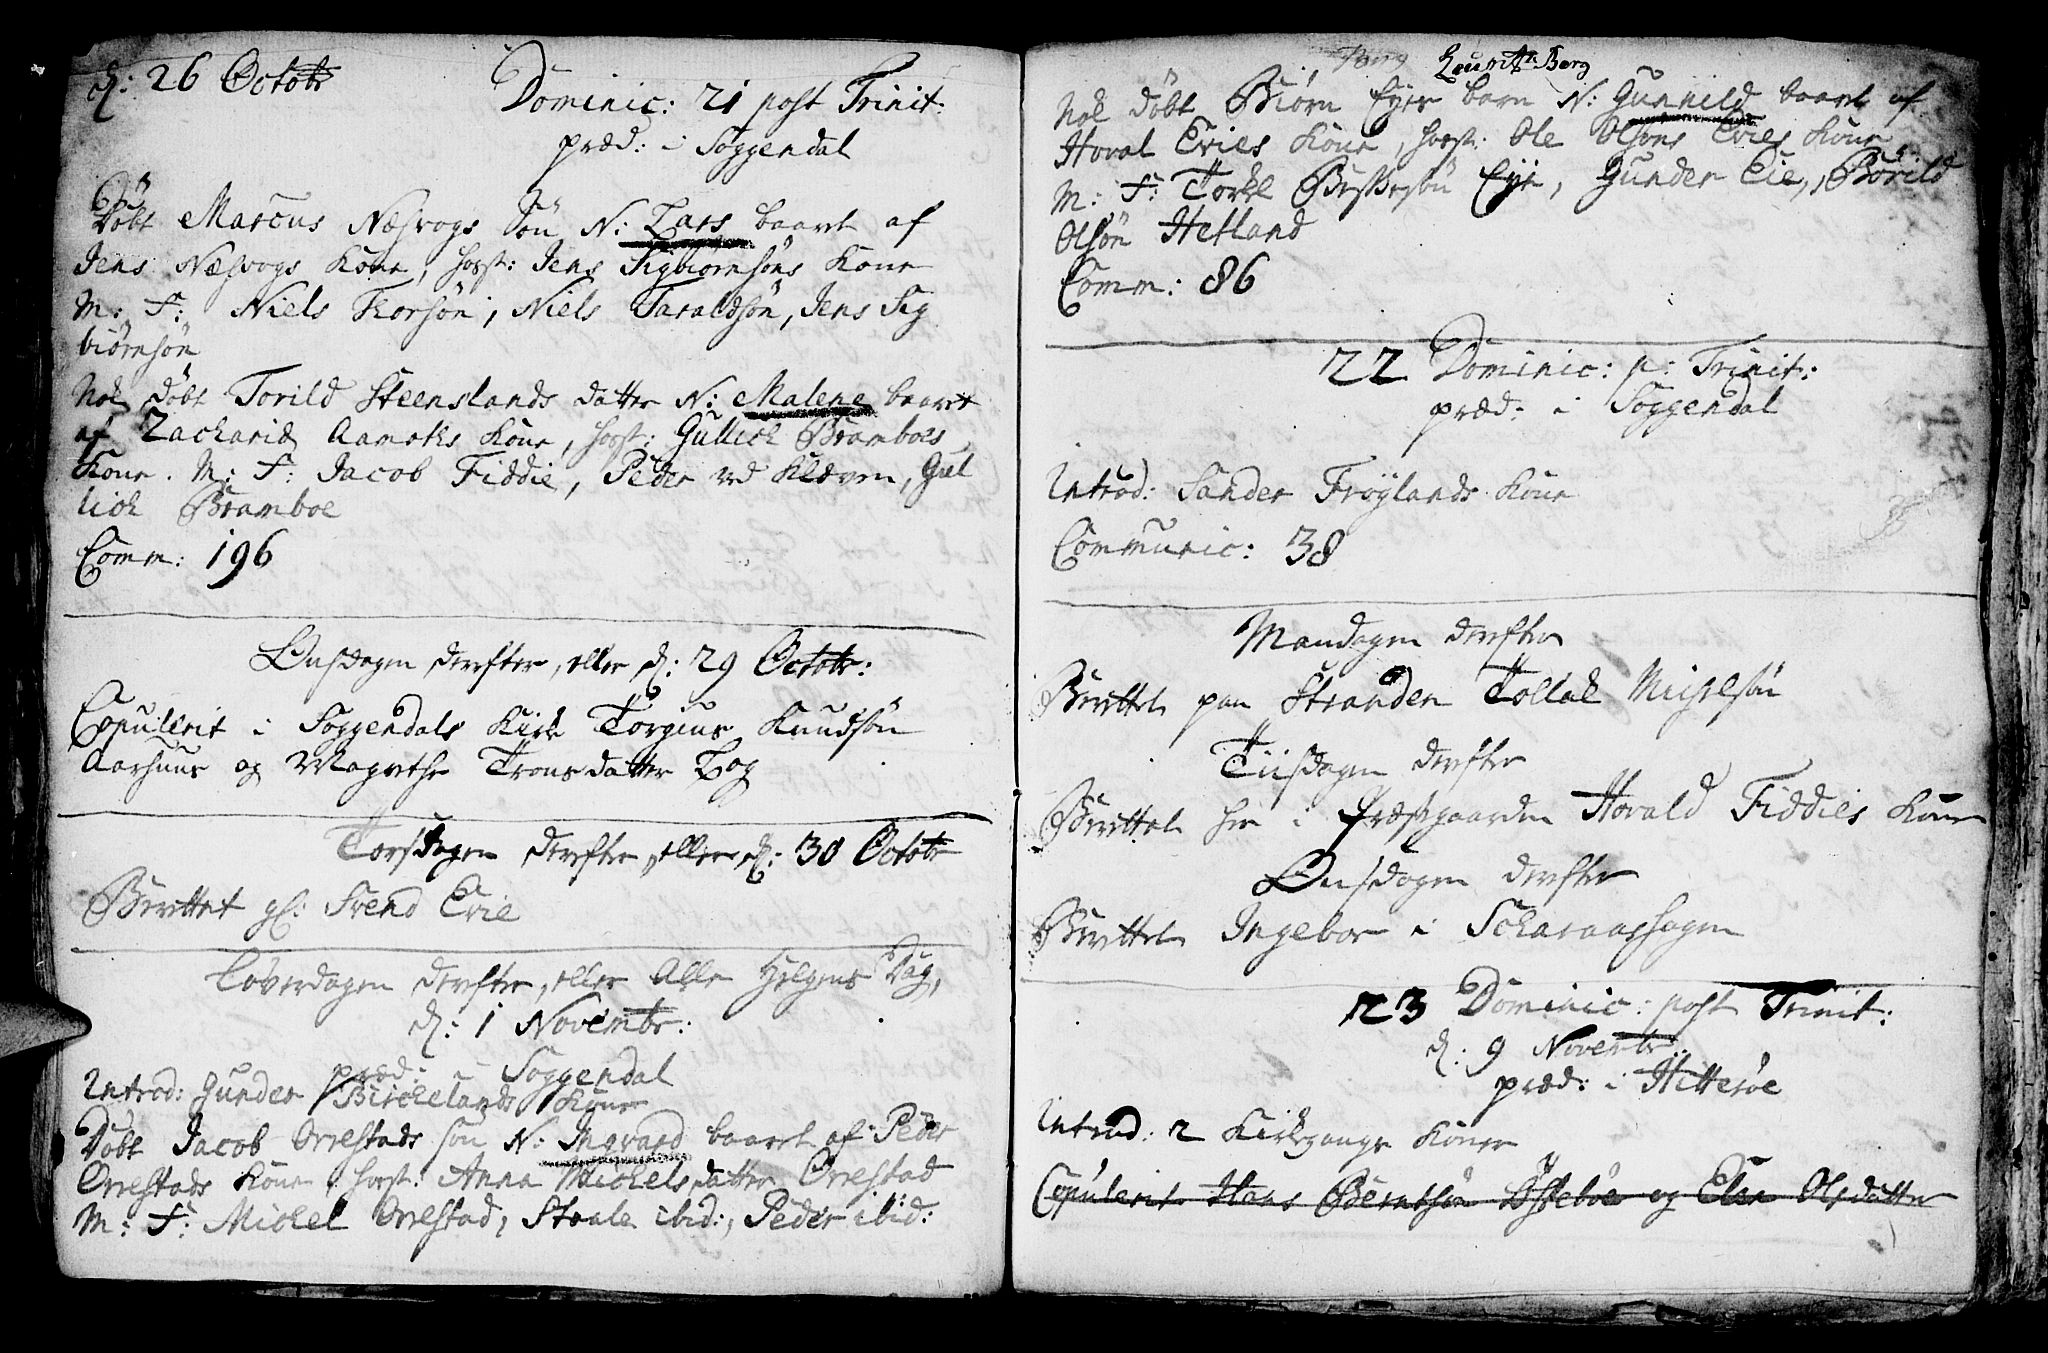 d: 26 Octobr
Dominic: 21 post Trinit:
præd: i Soggendal
Døbt Marcus Næsvogs Søn N: Lars baaret af
Jens Næsvogs Kone, host: Jens Sigbiørnsøns Kone
M: F: Niels Torsøn, Niels Taraldsøn, Jens Sig
biørnsøn
Nok døbt Torild Steenslands datter N: Malene baaret
af Zachariæ Aamots Kone, host: Gullich Bramboes
Kone. M: F: Jacob Fiddie, Peder ved Kleven, Gul
lich Bramboe
Comm: 196
Onsdagen derefter, eller d: 29 Octobr:
Copulerit i Soggendals Kirk Torgius Knudsøn
Aarhuus og Magrethe Tronsdatter Log
Torsdagen derefter, eller d: 30 Octobr
Berettet gl: Svend Evie
Løverdagen derefter, eller Alle Helgens Dag,
d: 1 Novembr:
præd: i Soggendal
Introd: Gunder Birckelands Kone
Døbt Jacob Orrestads søn N: Ingvard baaret af Peder
Orrestads Kone, host: Anna Michelsdatter Orrestad
M: F: Michel Orrestad, Staale ibid:, Peder ibid:
Laurits Berg
Nok døbt Biørn Eyes barn N: Gunnild baaret af
Hoval Evies Kone, host: Ole Olsøns Evies Kone
M: F: Torkel Eye, Gunder Eie, Borild
Olsøn Hetland
Comm: 86
22 Dominic: p: Trinit:
præd: i Soggendal
Introd: Sander Frøylands Kone
Communic: 38
Mandagen derefter
Berettet paa Stranden Tollak
Tiisdagen derefter
Berettet her i Præstgaarden Hovald Fiddies Kone
Onsdagen derefter
Berettet Ingebor i
23 Dominic: post Trinit:
d: 9 Novembr.
præd: i Hitterøe
Introd: 2 Kirkgangs Koner
Copulerit Hans Berntsøn og Else Olsdatter